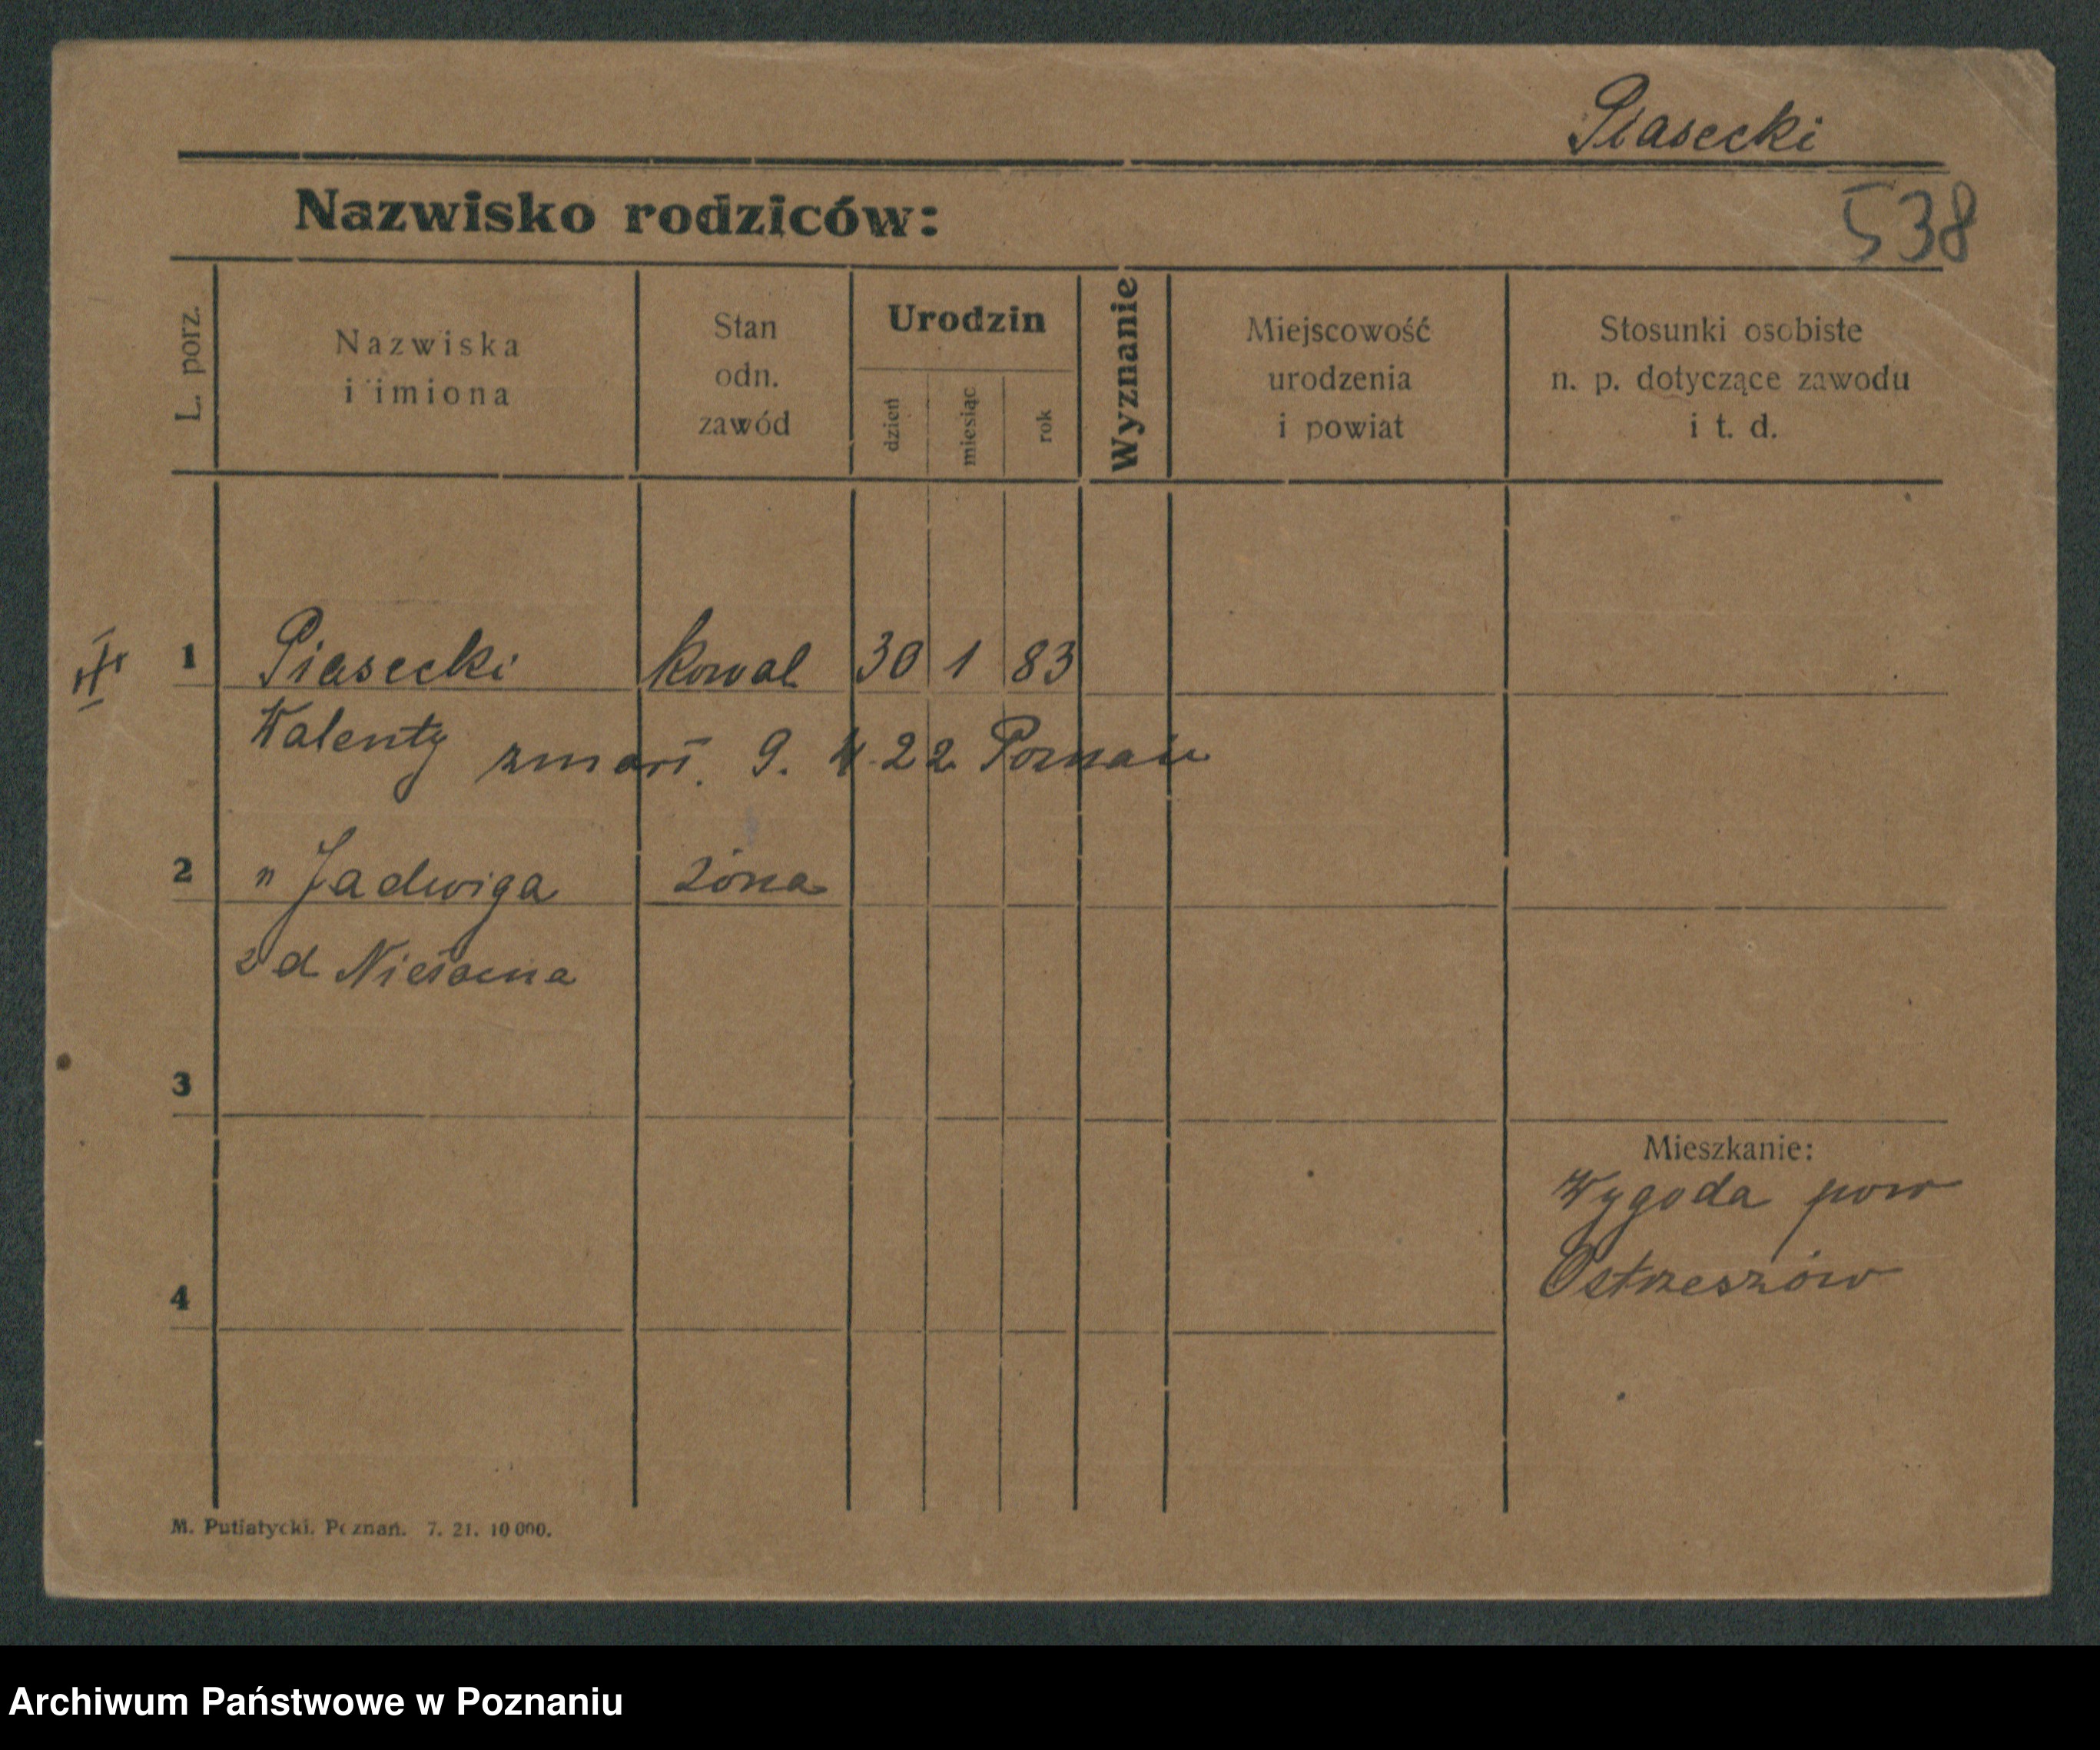 Piasecki
Nazwisko rodziców:
538
L. porz.
Nazwiska
i imiona
Stan
odn.
zawód
Urodzin
dzień
miesiąc
rok
Wyznanie
Miejscowość
urodzenia
i powiat
Stosunki osobiste
n. p. dotyczące zawodu
i t. d.
1 Piasecki kowal 30 1 83
Walenty zmarł. 9. 4. 22 Poznań
2 " Jadwiga żona
3
Mieszkanie:
Wygoda pow
Ostrzeszów
4
M. Putiatycki. Poznań. 7. 21. 10 000.
Archiwum Państwowe w Poznaniu